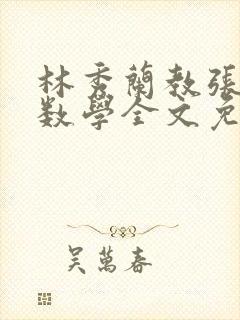 林秀蘭教張
数學全文免
吴萬春